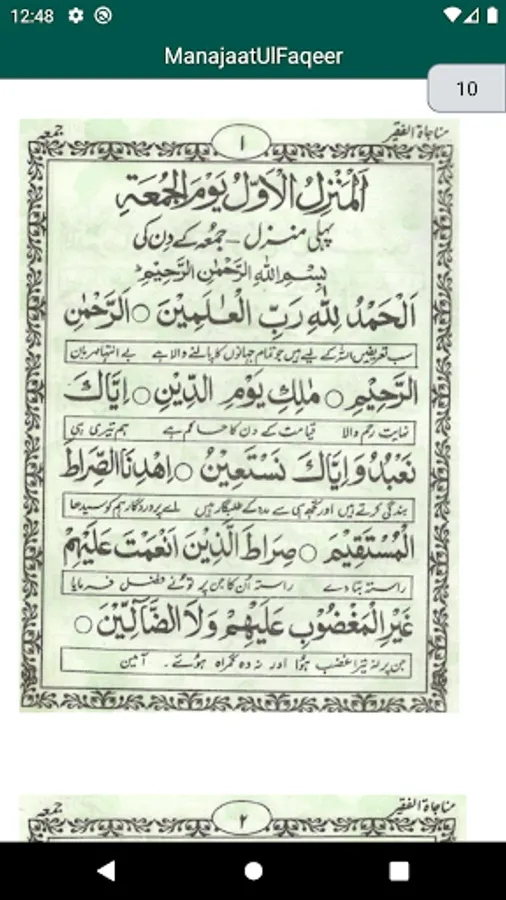 12:48
ManajaatUlFaqeer
10
مناجاة الفقير
جمعہ
١
اَلْمَنْزِلُ الْاَوَّلُ يَوْمَ الْجُمُعَةِ
پہلی منزل – جمعہ کے دن کی
بِسْمِ اللهِ الرَّحْمٰنِ الرَّحِيْمِ
اَلْحَمْدُ لِلّٰهِ رَبِّ الْعٰلَمِيْنَ ○ الرَّحْمٰنِ
سب تعریفیں اللہ کے لیے ہیں جو تمام جہانوں کا پالنے والا ہے بے انتہا مہربان
الرَّحِيْمِ ○ مٰلِكِ يَوْمِ الدِّيْنِ ○ اِيَّاكَ
نہایت رحم والا قیامت کے دن کا حاکم ہے ہم تیری ہی
نَعْبُدُ وَاِيَّاكَ نَسْتَعِيْنُ ○ اِهْدِنَا الصِّرَاطَ
بندگی کرتے ہیں اور تجھ ہی سے مدد کے طلبگار ہیں اے پروردگار ہم کو سیدھا
الْمُسْتَقِيْمَ ○ صِرَاطَ الَّذِيْنَ اَنْعَمْتَ عَلَيْهِمْ
راستہ بتا دے راستہ اُن کا جن پر تو نے فضل فرمایا
غَيْرِ الْمَغْضُوْبِ عَلَيْهِمْ وَلَا الضَّآلِّيْنَ ○
جن پر نہ تیرا غضب ہُوا اور نہ وہ گمراہ ہوئے ۔ آمین
مناجاة الفقير
جمعہ
٢